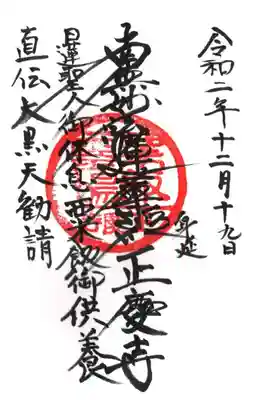 令和二年十二月十九日
身延
正慶寺
南無妙法蓮華経
日蓮聖人御休息粟飯御供養
直伝大黒天勧請